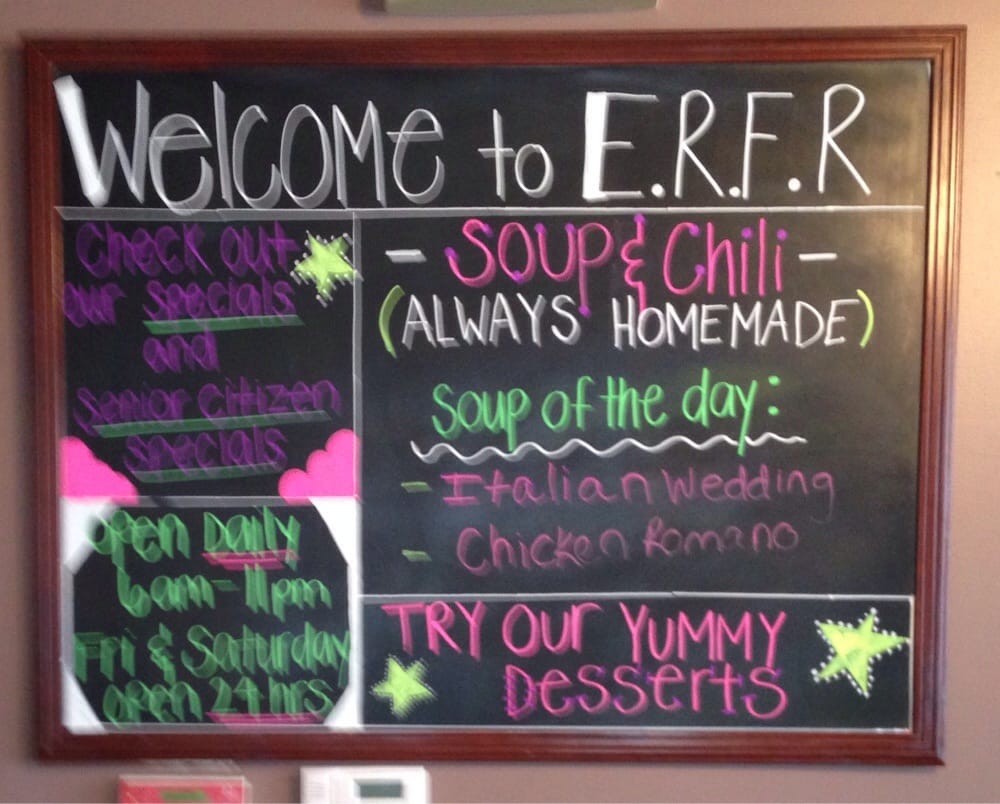 Welcome to E.R.F.R
Check out
our specials
and
Senior Citizen
specials
Open Daily
6am-11pm
Fri & Saturday
open 24 hrs
- Soup & Chili -
(ALWAYS HOMEMADE)
Soup of the day:
- Italian Wedding
- Chicken Romano
TRY Our YUMMY
Desserts